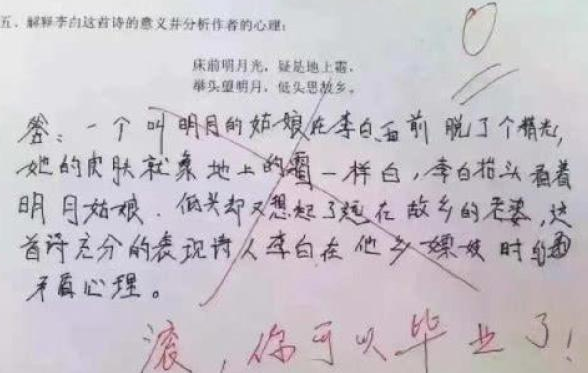 五、解释李白这首诗的意义并分析作者的心理:
床前明月光，疑是地上霜.
举头望明月，低头思故乡。
0
答：一个叫明月的姑娘在李白面前脱了个精光,
她的皮肤就象地上的霜一样白，李白抬头看着
明月姑娘.低头却又想起了远在故乡的老婆,这
首诗充分的表现诗人李白在他乡嫖妓时的
矛盾心理。
滚，你可以毕业了!